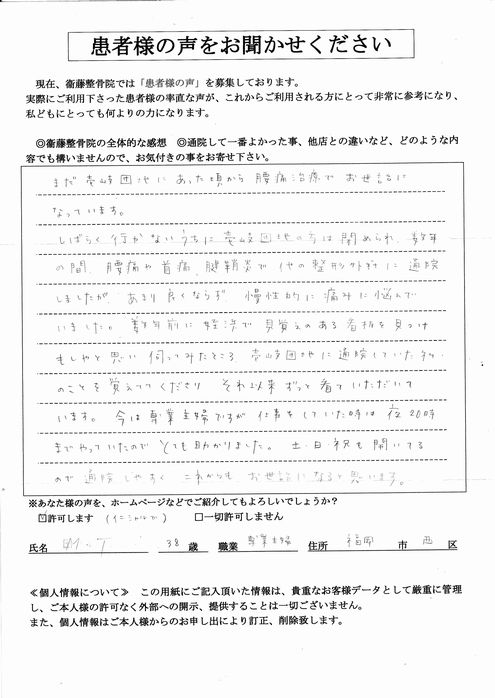 患者様の声をお聞かせください
現在、衞藤整骨院では「患者様の声」を募集しております。
実際にご利用下さった患者様の率直な声が、これからご利用される方にとって非常に参考になり、
私どもにとっても何よりの力になります。
◎衞藤整骨院の全体的な感想 ◎通院して一番よかった事、他店との違いなど、どのような内
容でも構いませんので、お気付きの事をお寄せ下さい。
まだ壱岐団地にあった頃から腰痛治療でお世話に
なっています。
しばらく行かないうちに壱岐団地の方は閉められ、数年
の間、腰痛や首痛、腱鞘炎で他の整形外科に通院
しましたが、あまり良くならず、慢性的に痛みに悩んで
いました。数年前に姪浜で見覚えのある看板を見つけ
もしやと思い伺ってみたところ、壱岐団地に通院していた
のことを覚えててくださり それ以来ずっと看ていただいて
います。今は専業主婦ですが仕事をしていた時は夜20時
までやっていたのでとても助かりました。土・日・祝も開いてる
ので通院しやすく これからも お世話になると思います。
※あなた様の声を、ホームページなどでご紹介してもよろしいでしょうか?
☑許可します (イニシャルで) □一切許可しません
氏名 38 歳 職業 専業主婦 住所 福岡 市 西 区
≪個人情報について≫ この用紙にご記入頂いた情報は、貴重なお客様データとして厳重に管理
し、ご本人様の許可なく外部への開示、提供することは一切ございません。
また、個人情報はご本人様からのお申し出により訂正、削除致します。